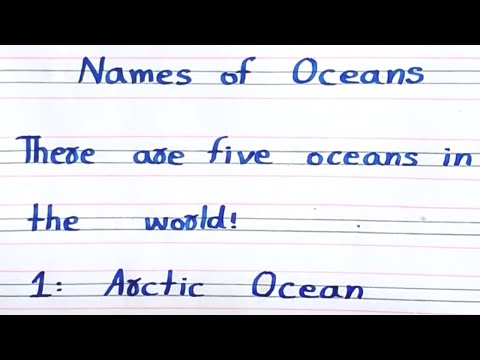 Names of Oceans
There are five oceans in
the world!
1: Arctic Ocean